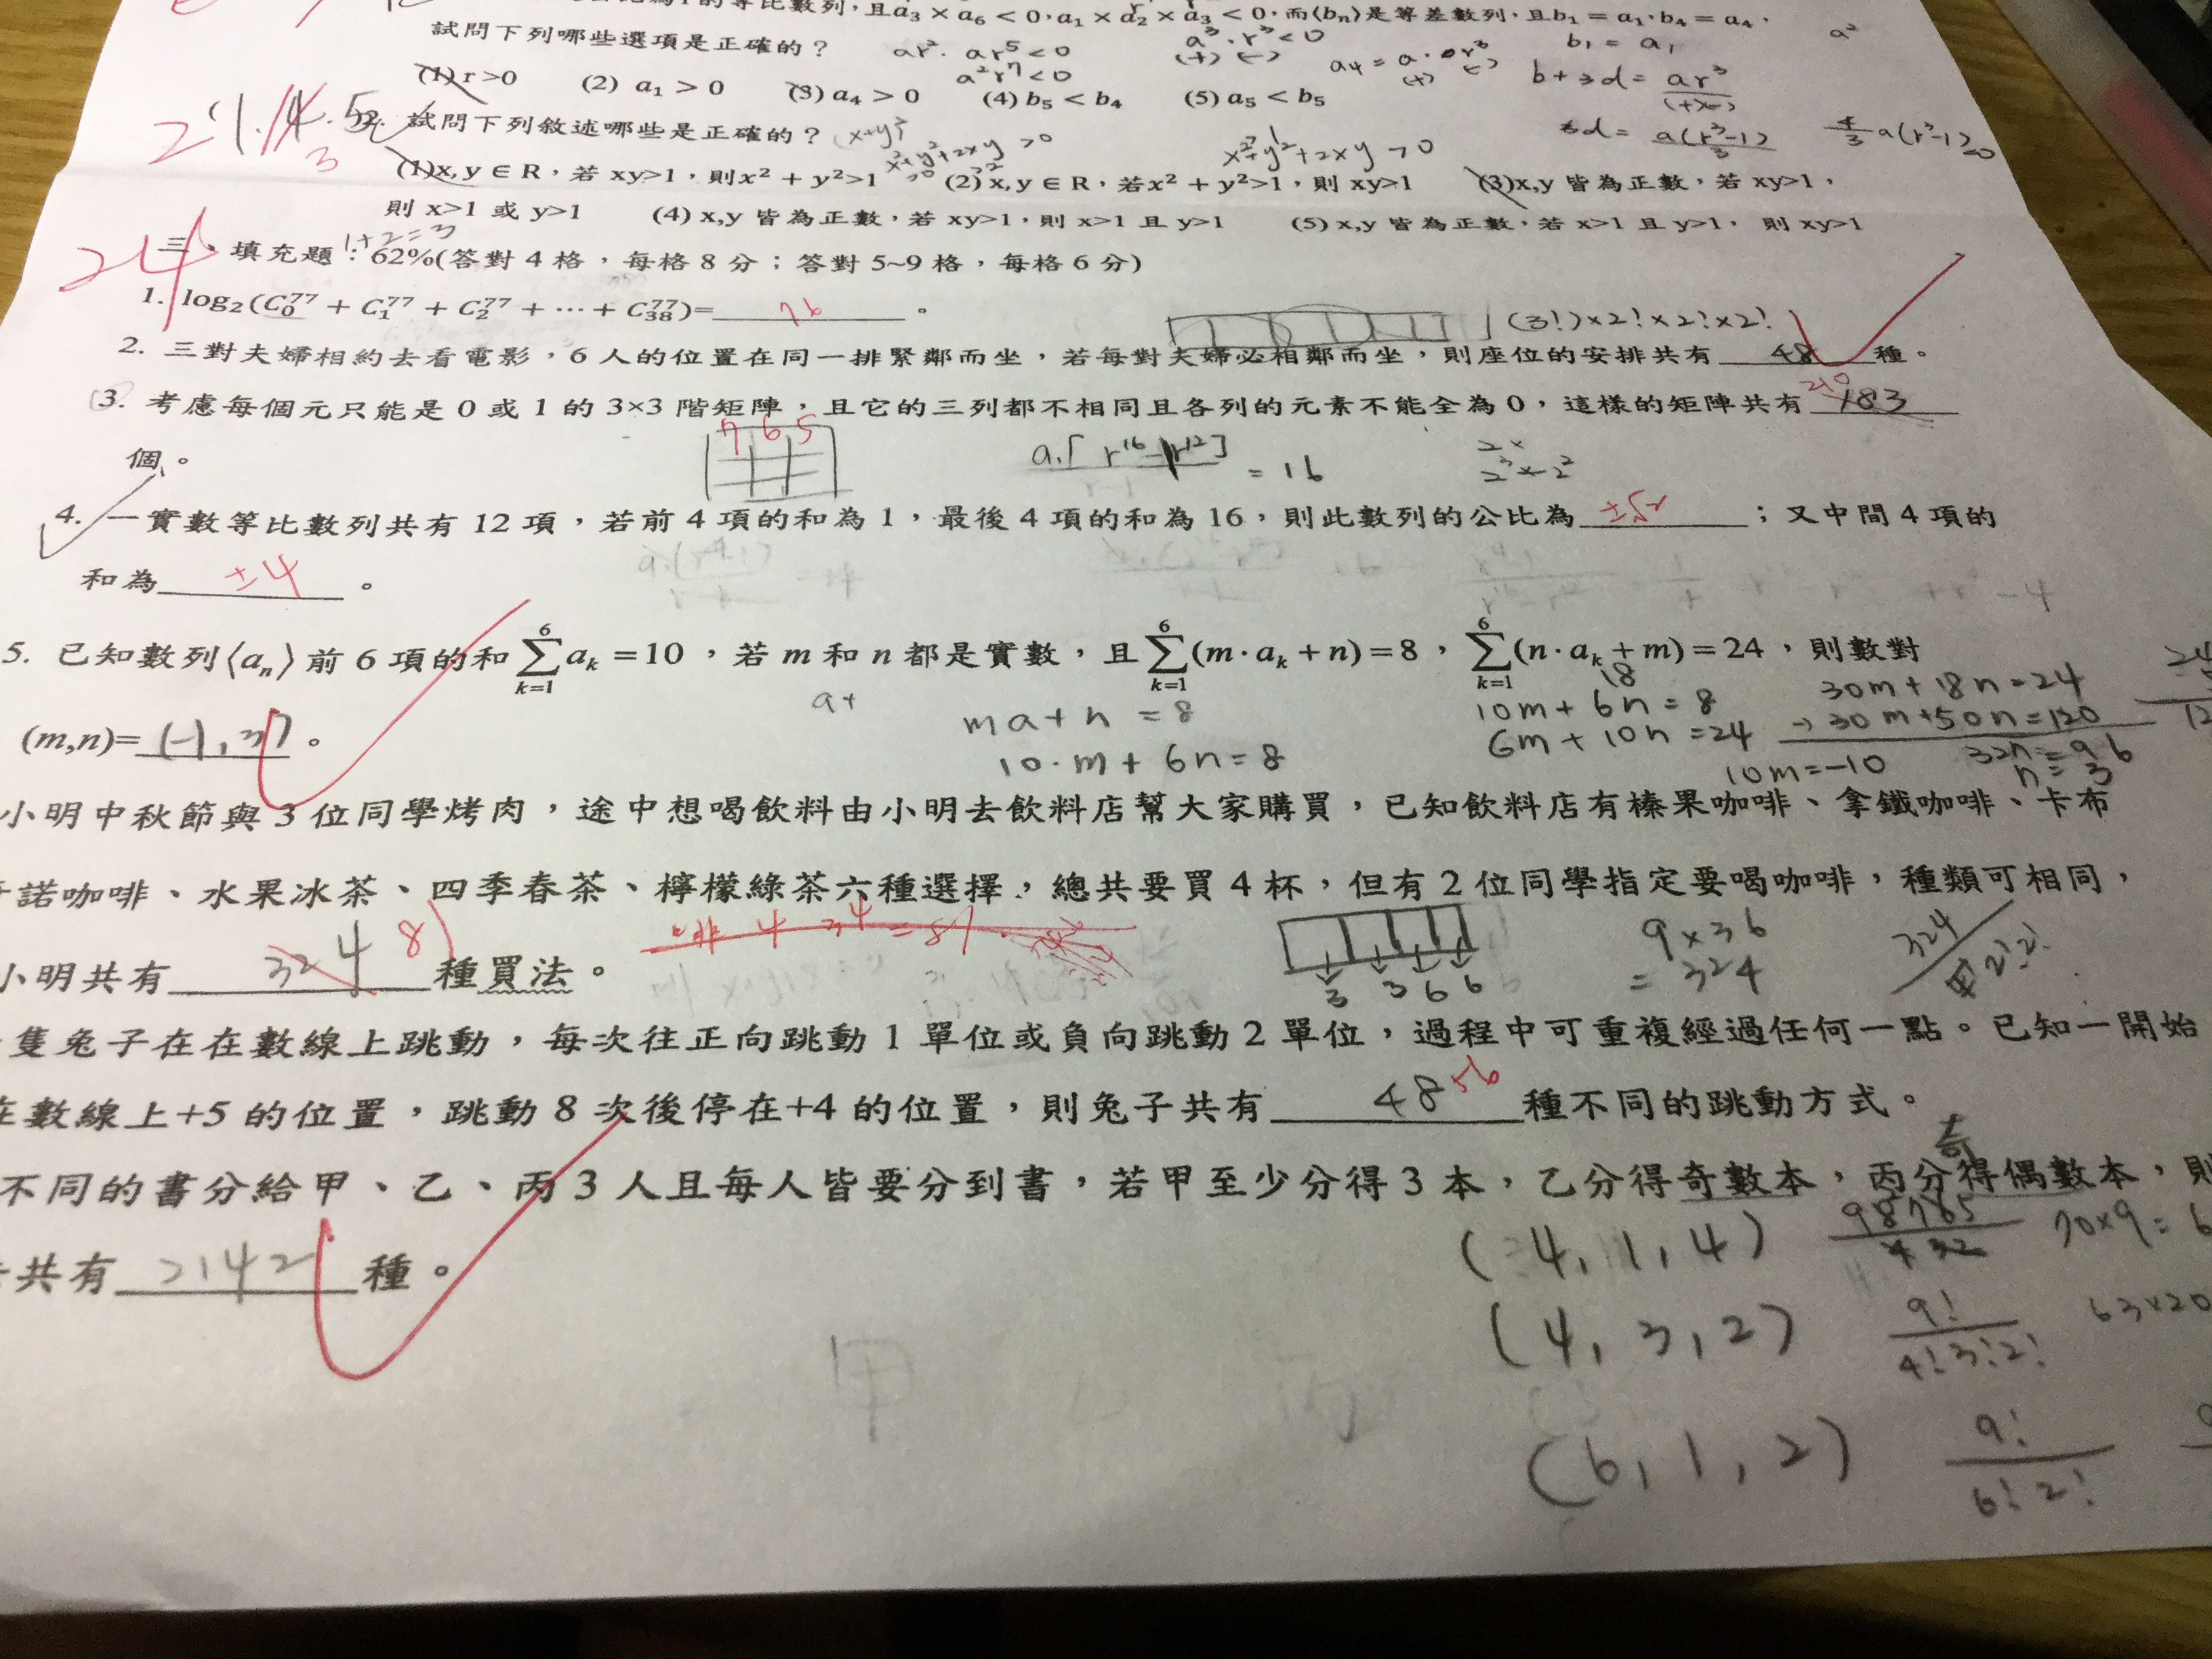 的等比數列,且a₃ × a₆ < 0,a₁ × a₂ × a₃ < 0,而⟨bₙ⟩是等差數列,且b₁ = a₁,b₄ = a₄,
試問下列哪些選項是正確的?
ar² · ar⁵ < 0
a²r⁷ < 0
a³ · r³ < 0
(+) (-)
b₁ = a₁
a²
(1) r > 0 (2) a₁ > 0 (3) a₄ > 0 (4) b₅ < b₄ (5) a₅ < b₅
b + 3d = ar³
試問下列敘述哪些是正確的?
x²+y²+2xy > 0
x²+y²+2xy > 0
(1)x, y ∈ R,若 xy>1,則x² + y²>1 (2) x, y ∈ R,若x² + y²>1,則 xy>1 (3)x,y 皆為正數,若 xy>1,
則 x>1 或 y>1 (4) x,y 皆為正數,若 xy>1,則 x>1 且 y>1 (5) x,y 皆為正數,若 x>1 且 y>1, 則 xy>1
1+2=3
24
三、填充題:62%(答對 4 格,每格 8 分;答對 5~9 格,每格 6 分)
1. log₂(C₀⁷⁷ + C₁⁷⁷ + C₂⁷⁷ + ⋯ + C₃₈⁷⁷)= 76 。
(3!)×2!×2!×2!
2. 三對夫婦相約去看電影,6 人的位置在同一排緊鄰而坐,若每對夫婦必相鄰而坐,則座位的安排共有 48 種。
3. 考慮每個元只能是 0 或 1 的 3×3 階矩陣,且它的三列都不相同且各列的元素不能全為 0,這樣的矩陣共有 183 210
個。
7 6 5
= 16
4. 一實數等比數列共有 12 項,若前 4 項的和為 1,最後 4 項的和為 16,則此數列的公比為 ±√2 ;又中間 4 項的
和為 ±4 。
5. 已知數列⟨aₙ⟩前 6 項的和 ∑_{k=1}^{6} aₖ = 10,若 m 和 n 都是實數,且 ∑_{k=1}^{6} (m·aₖ + n) = 8,∑_{k=1}^{6} (n·aₖ + m) = 24,則數對
(m,n)= (-1, 3) 。
ma+n = 8
10·m + 6n = 8
10m + 6n = 8
6m + 10n = 24
30m + 18n = 24
→ 30m + 50n = 120
32n = 96
n = 3
10m = -10
小明中秋節與 3 位同學烤肉,途中想喝飲料由小明去飲料店幫大家購買,已知飲料店有榛果咖啡、拿鐵咖啡、卡布
諾咖啡、水果冰茶、四季春茶、檸檬綠茶六種選擇,總共要買 4 杯,但有 2 位同學指定要喝咖啡,種類可相同,
小明共有 324 81 種買法。
3 3 6 6
9×36
= 324
隻兔子在在數線上跳動,每次往正向跳動 1 單位或負向跳動 2 單位,過程中可重複經過任何一點。已知一開始
在數線上+5 的位置,跳動 8 次後停在+4 的位置,則兔子共有 48 56 種不同的跳動方式。
不同的書分給甲、乙、丙 3 人且每人皆要分到書,若甲至少分得 3 本,乙分得奇數本,丙分得偶數本,則
共有 2142 種。
(4, 1, 4)
(4, 3, 2) 9!/4!3!2!
(6, 1, 2) 9!/6!2!